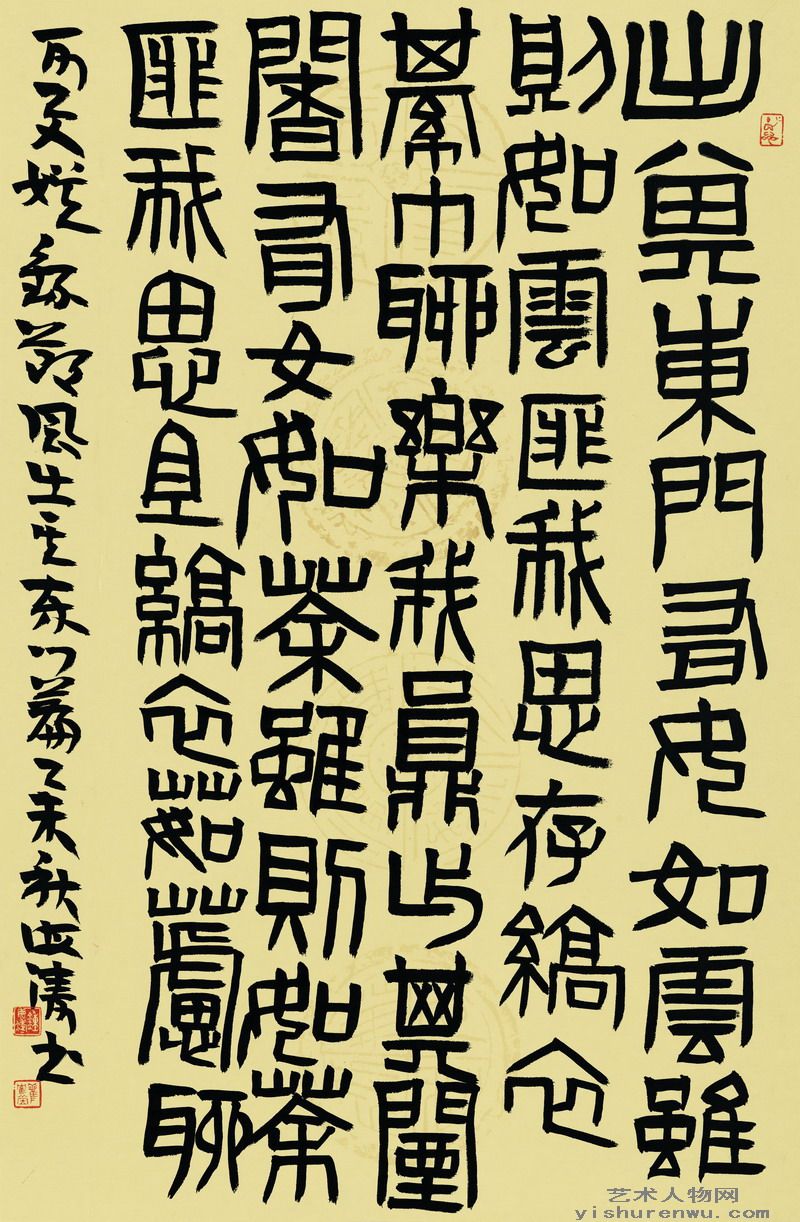 出其東門有女如雲雖
則如雲匪我思存縞衣
綦巾聊樂我員出其闉
闍有女如荼雖則如荼
匪我思且縞衣茹藘聊
可與娱錄鄭風出其东门篇乙未秋濤书
艺术人物网
yishurenwu.com